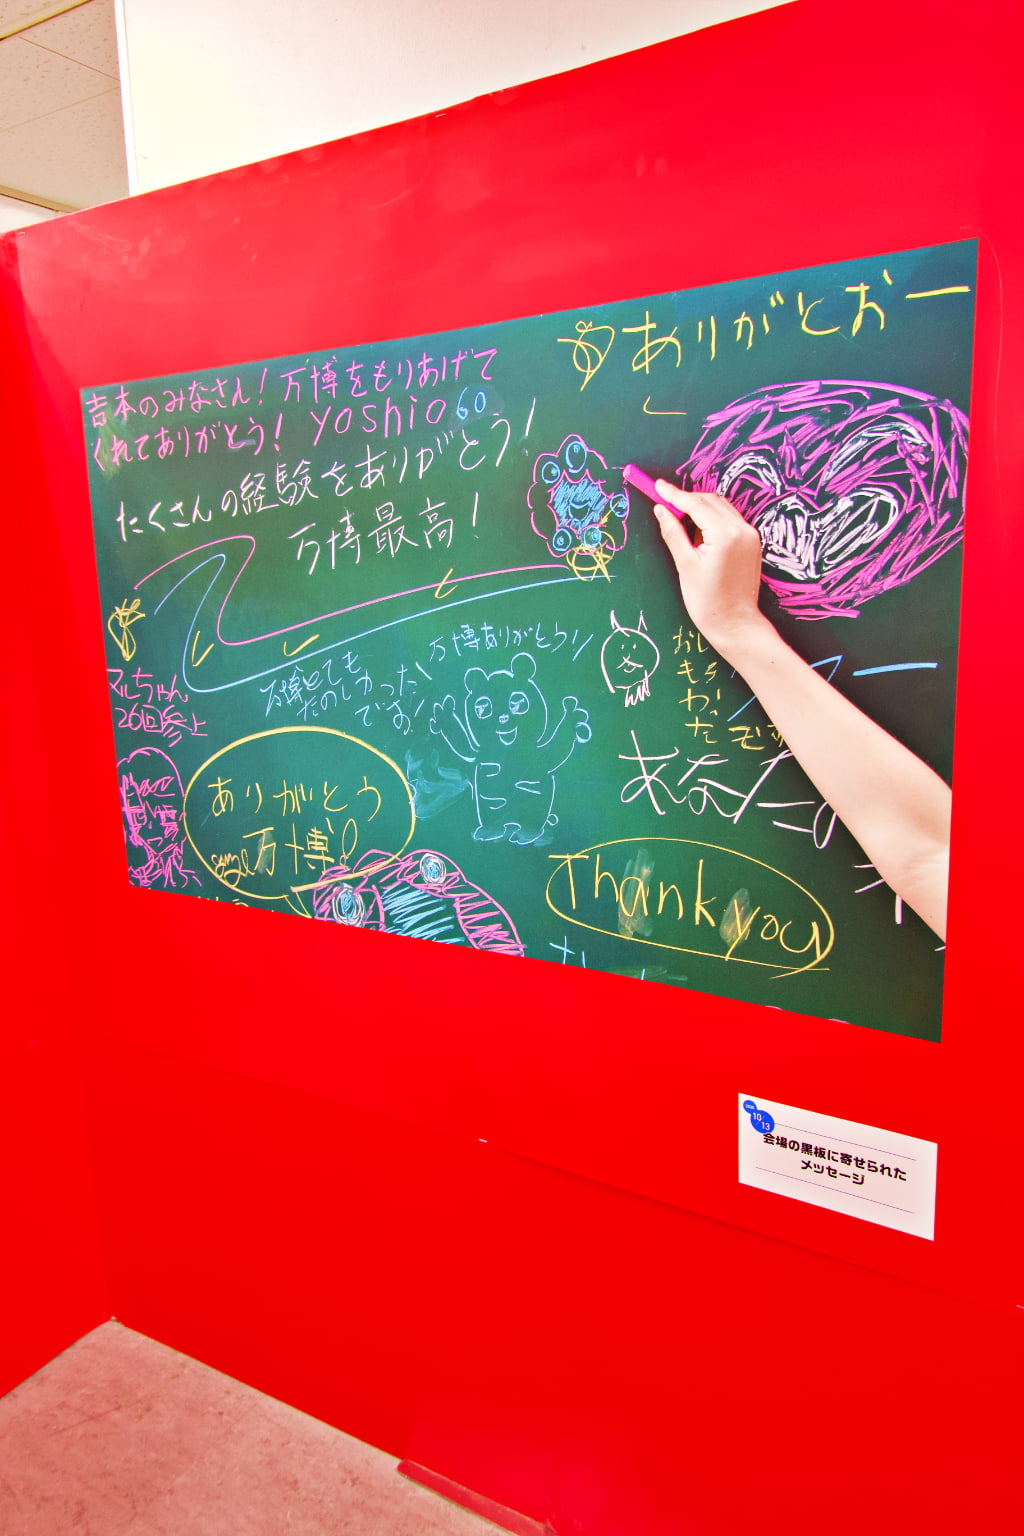 吉本のみなさん！万博をもりあげて
くれてありがとう！yoshio60
たくさんの経験をありがとう！
万博最高！
ありがとおー
万博ありがとう!!
万博とても
たのしかった
でお!
マルちゃん
26回参上
ありがとう
万博!
Thank you
10/13
会場の黒板に寄せられた
メッセージ